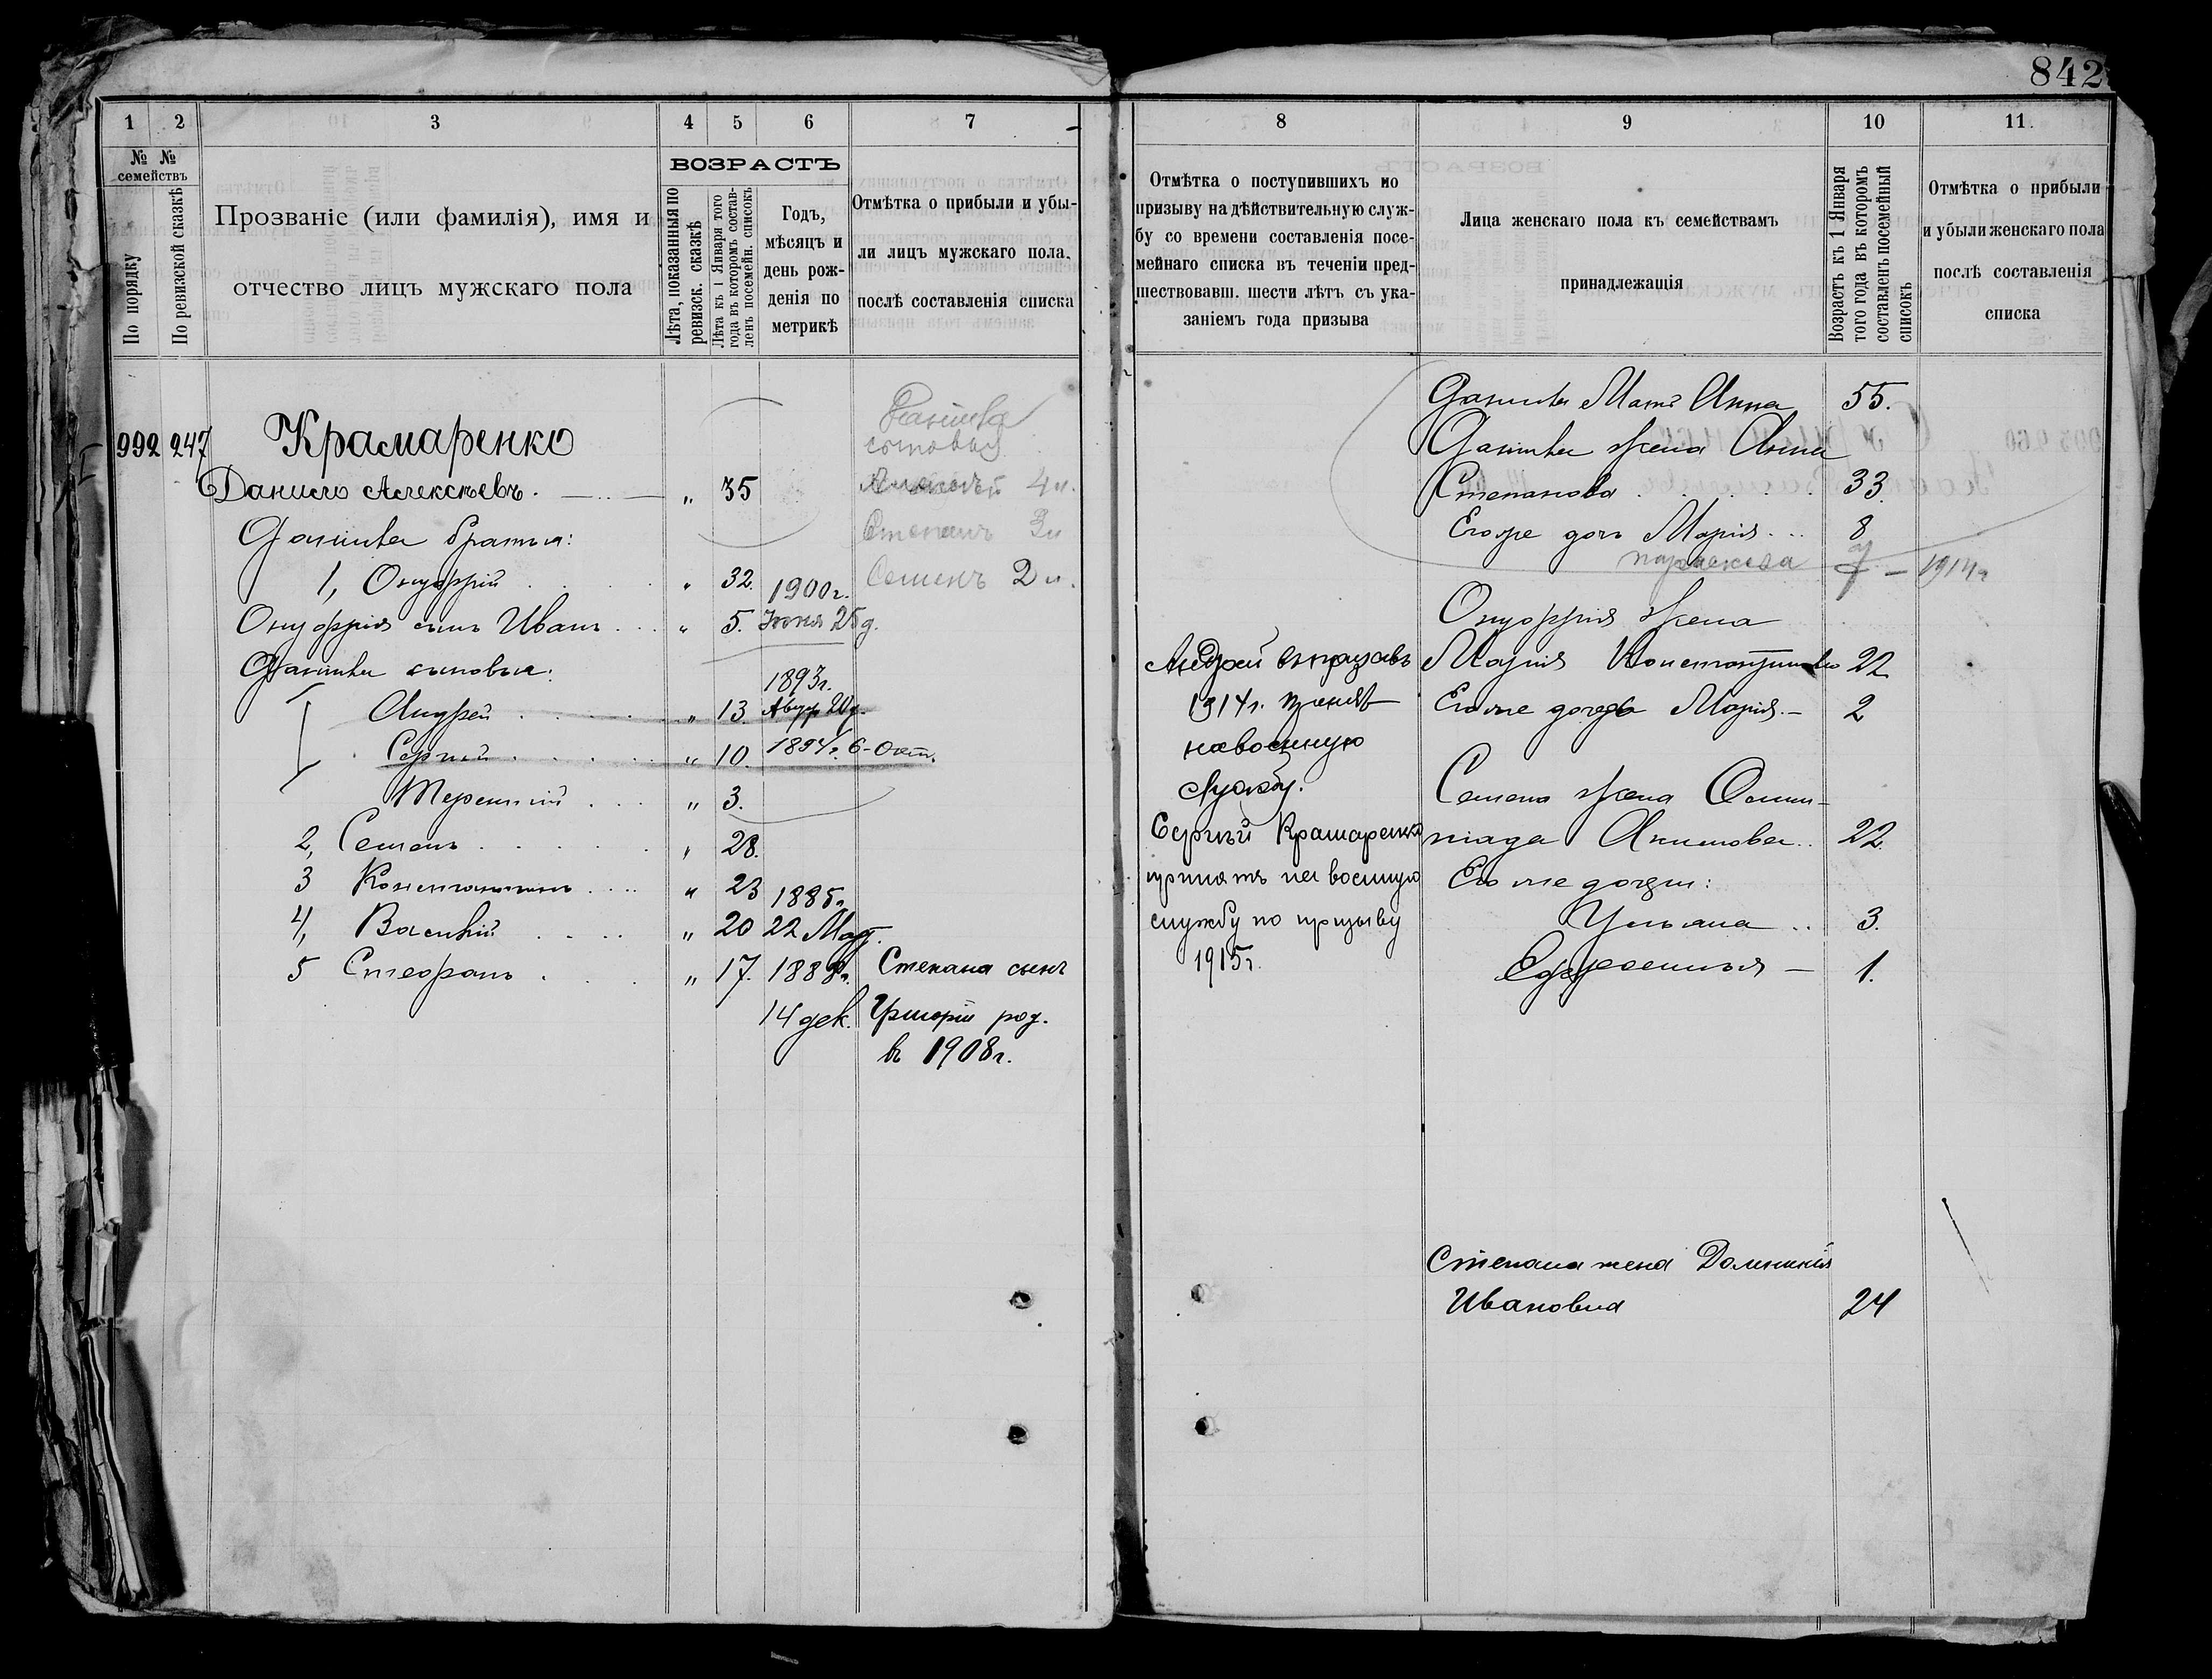 842
1 2 3 4 5 6 7
№ № семействъ
По порядку
По ревизской сказкѣ
Прозваніе (или фамилія), имя и
отчество лицъ мужскаго пола
ВОЗРАСТЪ
Лѣта, показанныя по
ревизск. сказкѣ
Лѣта къ 1 Января того
года въ которомъ состав-
ленъ посемейн. списокъ
Годъ,
мѣсяцъ и
день рож-
денія по
метрикѣ
Отмѣтка о прибыли и убы-
ли лицъ мужскаго пола,
послѣ составленія списка
992 247 Крамаренко
Данило Алексѣевъ. „ 35
Данила братья:
1, Онуфрій „ 32.
Онуфрія сынъ Иванъ „ 5. 1900г.
Іюня 25д.
Данила сыновья:
Андрей „ 13. 1893г.
Авгус 20д.
Сергѣй „ 10. 1894г. 6-Окт.
Терентій „ 3.
2, Семенъ „ 28.
3 Константинъ „ 23
4, Василій „ 20 1885г.
22 Мар.
5 Стефанъ „ 17. 1888г.
14 дек.
Данила
сыновья
Алексѣй 4 л.
Степанъ 3 л
Семенъ 2 л.
Степана сынъ
Григорій род.
въ 1908г.
8 9 10 11.
Отмѣтка о поступившихъ по
призыву на дѣйствительную служ-
бу со времени составленія посе-
мейнаго списка въ теченіи пред-
шествовавш. шести лѣтъ съ ука-
заніемъ года призыва
Лица женскаго пола къ семействамъ
принадлежащія
Возрастъ къ 1 Января
того года въ которомъ
составленъ посемейный
списокъ
Отмѣтка о прибыли
и убыли женскаго пола
послѣ составленія
списка
Андрей
1914г. принятъ
на военную
службу.
Сергѣй Крамаренко
принятъ на военную
службу по призыву
1915г.
Данила Мать Анна 55.
Данила жена Анна
Степанова 33.
Его же дочь Марія 8
Параскева 1914г
Онуфрія жена
Марія Константинова 22
Его же дочерь Марія. 2
Семена жена Олим-
піада Акимова 22.
Его же дочери:
Ульяна 3.
Ефросинія 1.
Степана жена Доминикія
Ивановна 24